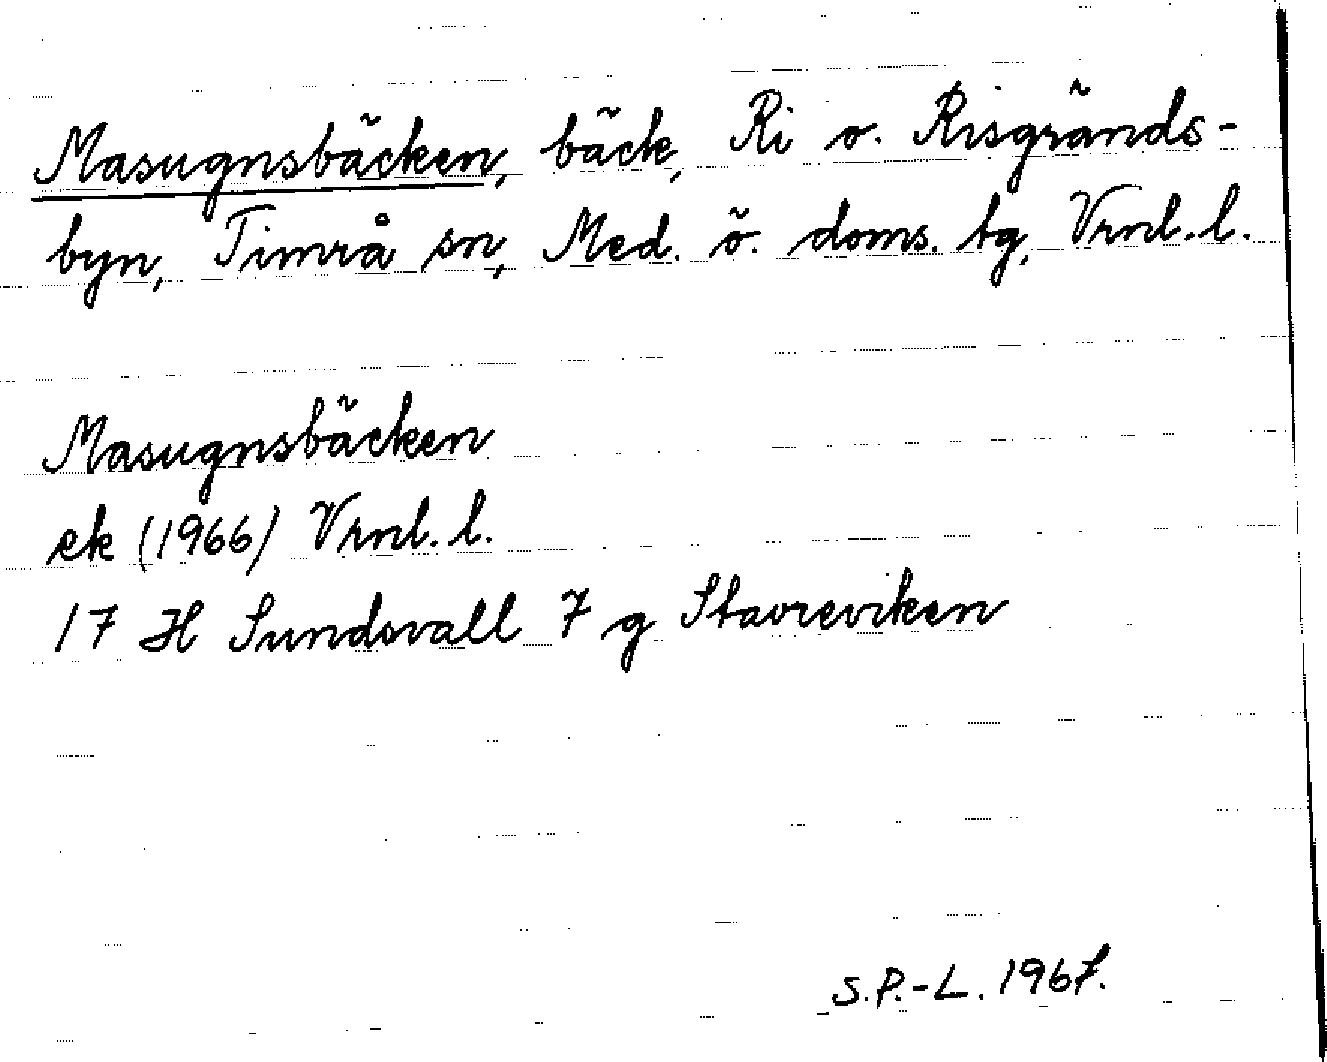 Masugnsbäcken, bäck, Ri o. Risgränds-
byn, Timrå sn, Med. ö. doms. tg, Vrnl. l.
Masugnsbäcken
ek (1966) Vrnl. l.
17 H Sundsvall 7 g Stavreviken
S.P.-L. 1967.